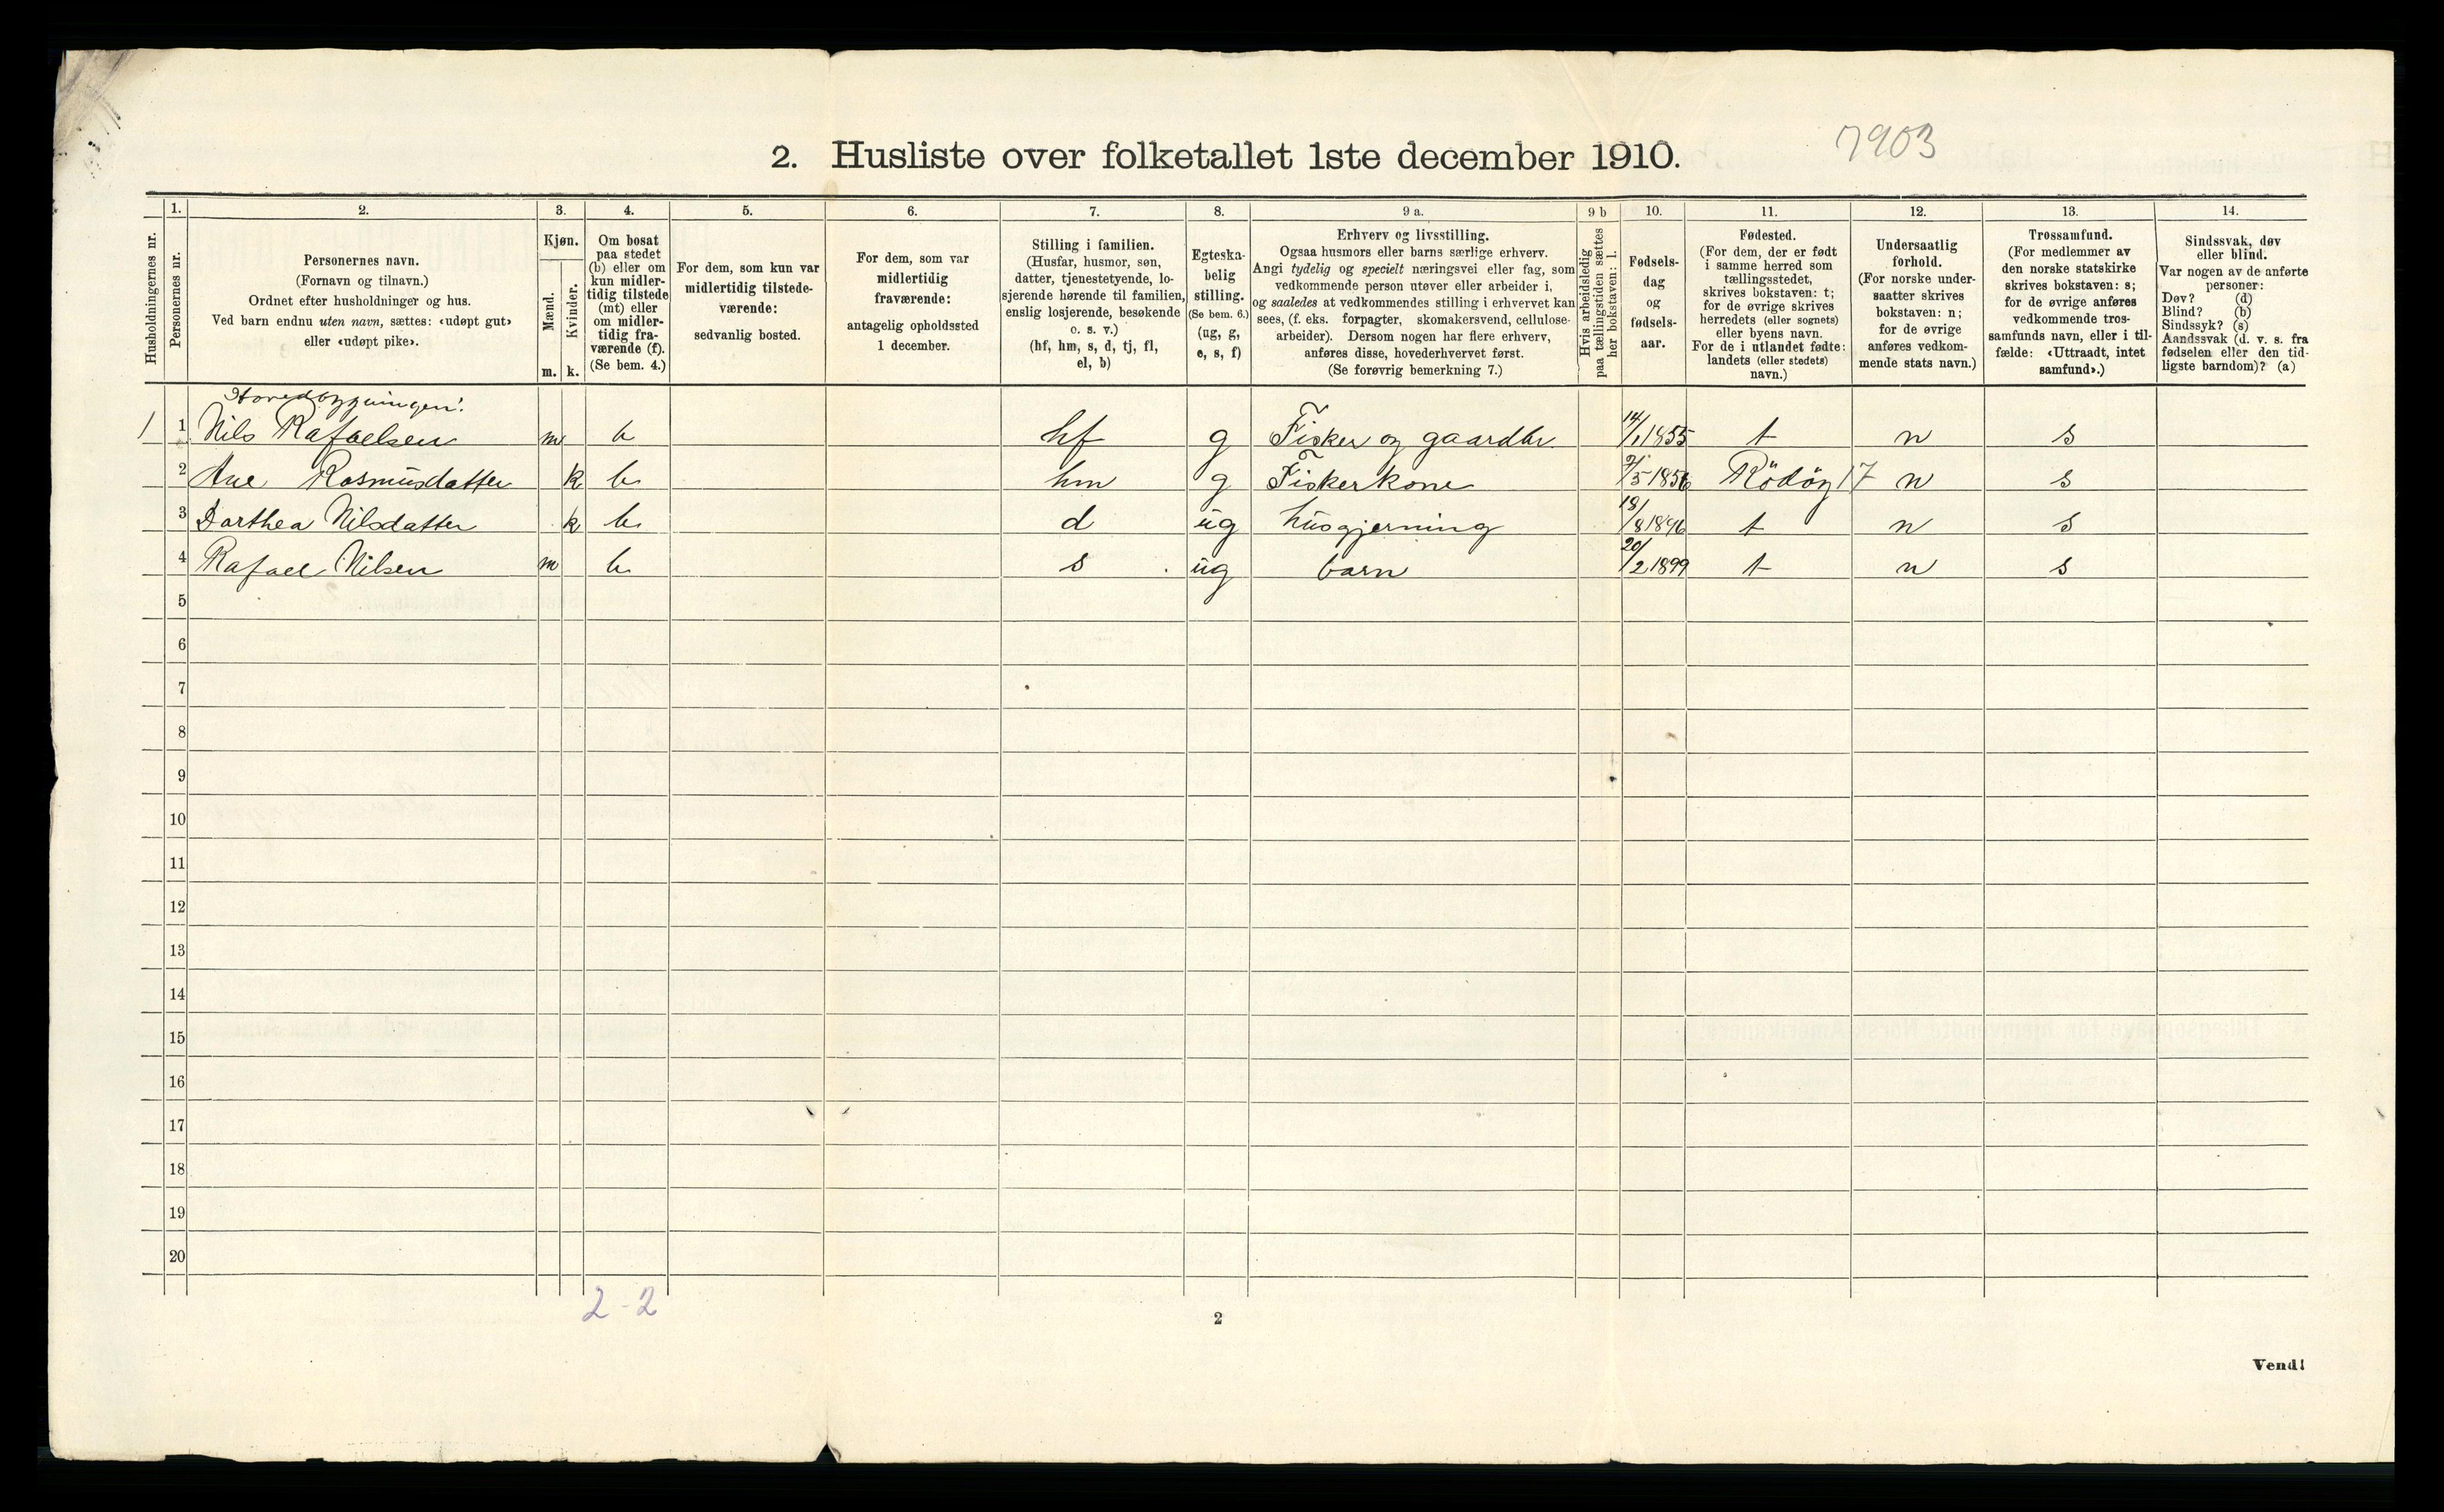 7903
2. Husliste over folketallet 1ste december 1910.
Husholdningernes nr.
1.
Personernes nr.
2.
Personernes navn.
(Fornavn og tilnavn.)
Ordnet efter husholdninger og hus.
Ved barn endnu uten navn, sættes: «udøpt gut»
eller «udøpt pike».
3.
Kjøn.
Mænd.
Kvinder.
m. k.
4.
Om bosat
paa stedet
(b) eller om
kun midler-
tidig tilstede
(mt) eller
om midler-
tidig fra-
værende (f).
(Se bem. 4.)
5.
For dem, som kun var
midlertidig tilstede-
værende:
sedvanlig bosted.
6.
For dem, som var
midlertidig
fraværende:
antagelig opholdssted
1 december.
7.
Stilling i familien.
(Husfar, husmor, søn,
datter, tjenestetyende, lo-
sjerende hørende til familien,
enslig losjerende, besøkende
o. s. v.)
(hf, hm, s, d, tj, fl,
el, b)
8.
Egteska-
belig
stilling.
(Se bem. 6.)
(ug, g,
e, s, f)
9 a.
Erhverv og livsstilling.
Ogsaa husmors eller barns særlige erhverv.
Angi tydelig og specielt næringsvei eller fag, som
vedkommende person utøver eller arbeider i,
og saaledes at vedkommendes stilling i erhvervet kan
sees, (f. eks. forpagter, skomakersvend, cellulose-
arbeider). Dersom nogen har flere erhverv,
anføres disse, hovederhvervet først.
(Se forøvrig bemerkning 7.)
9 b
Hvis arbeidsledig
paa tællingstiden sættes
her bokstaven: l.
10.
Fødsels-
dag
og
fødsels-
aar.
11.
Fødested.
(For dem, der er født
i samme herred som
tællingsstedet,
skrives bokstaven: t;
for de øvrige skrives
herredets (eller sognets)
eller byens navn.
For de i utlandet fødte:
landets (eller stedets)
navn.)
12.
Undersaatlig
forhold.
(For norske under-
saatter skrives
bokstaven: n;
for de øvrige
anføres vedkom-
mende stats navn.)
13.
Trossamfund.
(For medlemmer av
den norske statskirke
skrives bokstaven: s;
for de øvrige anføres
vedkommende tros-
samfunds navn, eller i til-
fælde: «Uttraadt, intet
samfund».)
14.
Sindssvak, døv
eller blind.
Var nogen av de anførte
personer:
Døv? (d)
Blind? (b)
Sindssyk? (s)
Aandssvak (d. v. s. fra
fødselen eller den tid-
ligste barndom)? (a)
Hovedbygningen!
1 1 Nils Rafaelsen m b hf g Fisker og gaardbr. 14/1 1855 t n s
2 Ane Rasmusdatter k b hm g Fiskerkone /5 1856 Rödöy 17 n s
3 Dorthea Nilsdatter k b d ug husgjerning 18/8 1896 t n s
4 Rafael Nilsen m b s ug barn 20/2 1899 t n s
5
6
7
8
9
10
11
12
13
14
15
16
17
18
19
20
2-2
2
Vend!